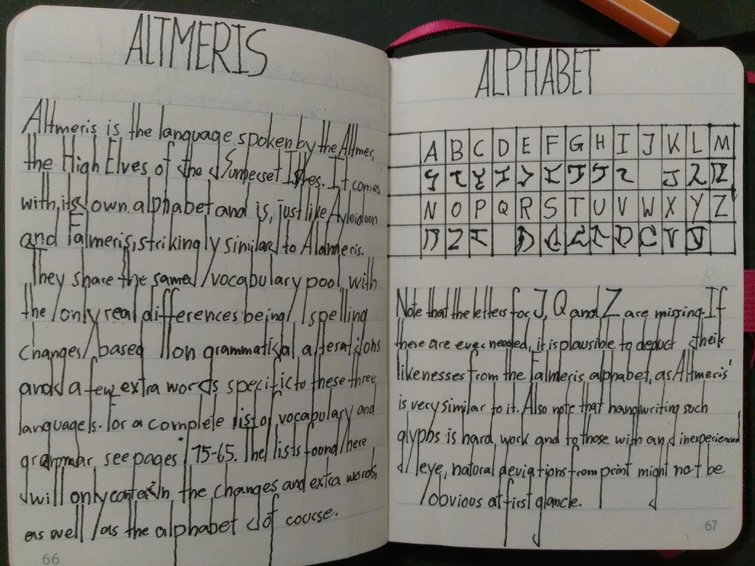 ALTMERIS
Altmeris is the language spoken by the Altmer,
the High Elves of the Sumerset Isles. It comes
with its own alphabet and is, just like Ayleidoon
and Falmeris, strikingly similar to Aldmeris.
They share the same vocabulary pool, with
the only real differences being spelling
changes based on grammatical alterations
and a few extra words specific to these three
languages. For a complete list of vocabulary and
grammar, see pages 75-65. The lists found here
will only contain the changes and extra words,
as well as the alphabet of course.
66
ALPHABET
A B C D E F G H I J K L M
N O P Q R S T U V W X Y Z
Note that the letters for J, Q and Z are missing. If
these are ever needed, it is plausible to deduct their
likenesses from the Falmeris alphabet, as Altmeris'
is very similar to it. Also note that handwriting such
glyphs is hard work and to those with an inexperienced
eye, natural deviations from print might not be
obvious at first glance.
67